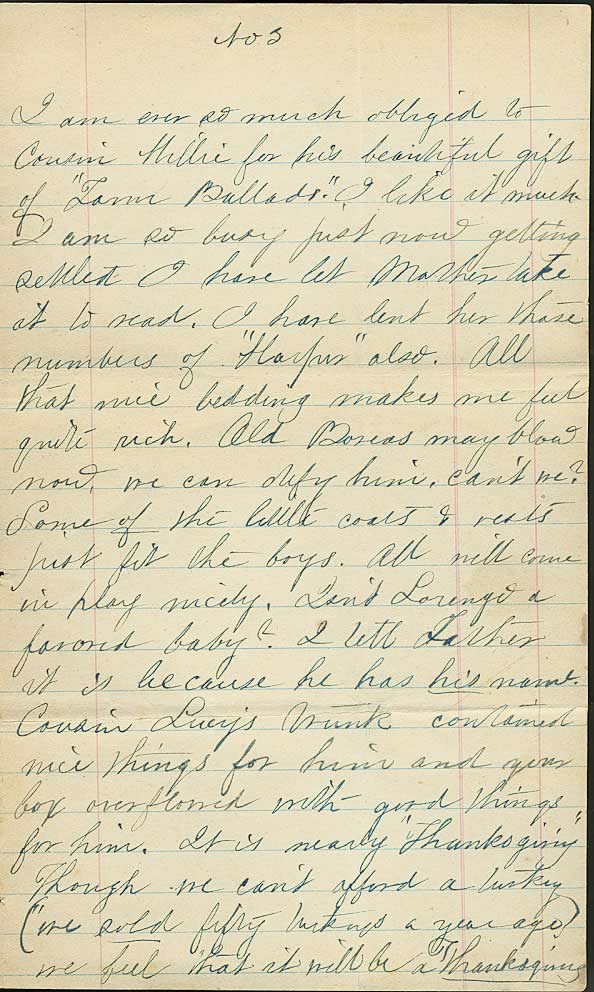 No 3
I am ever so much obliged to
Cousin Willie for his beautiful gift
of "Farm Ballads." I like it much.
I am so busy just now getting
settled I have let Mother take
it to read. I have lent her those
numbers of "Harper" also. All
that nice bedding makes me feel
quite rich. Old Boreas may blow
now, we can defy him, can't we?
Some of the little coats & vests
just fit the boys. All will come
in play nicely. Isn't Lorenzo a
favored baby? I tell Father
it is because he has his name.
Cousin Lucy's trunk contained
nice things for him and your
box overflowed with good things
for him. It is nearly "Thanksgiving"
Though we can't afford a turkey
("we sold fifty turkeys a year ago)
we feel that it will be a "Thanksgiving